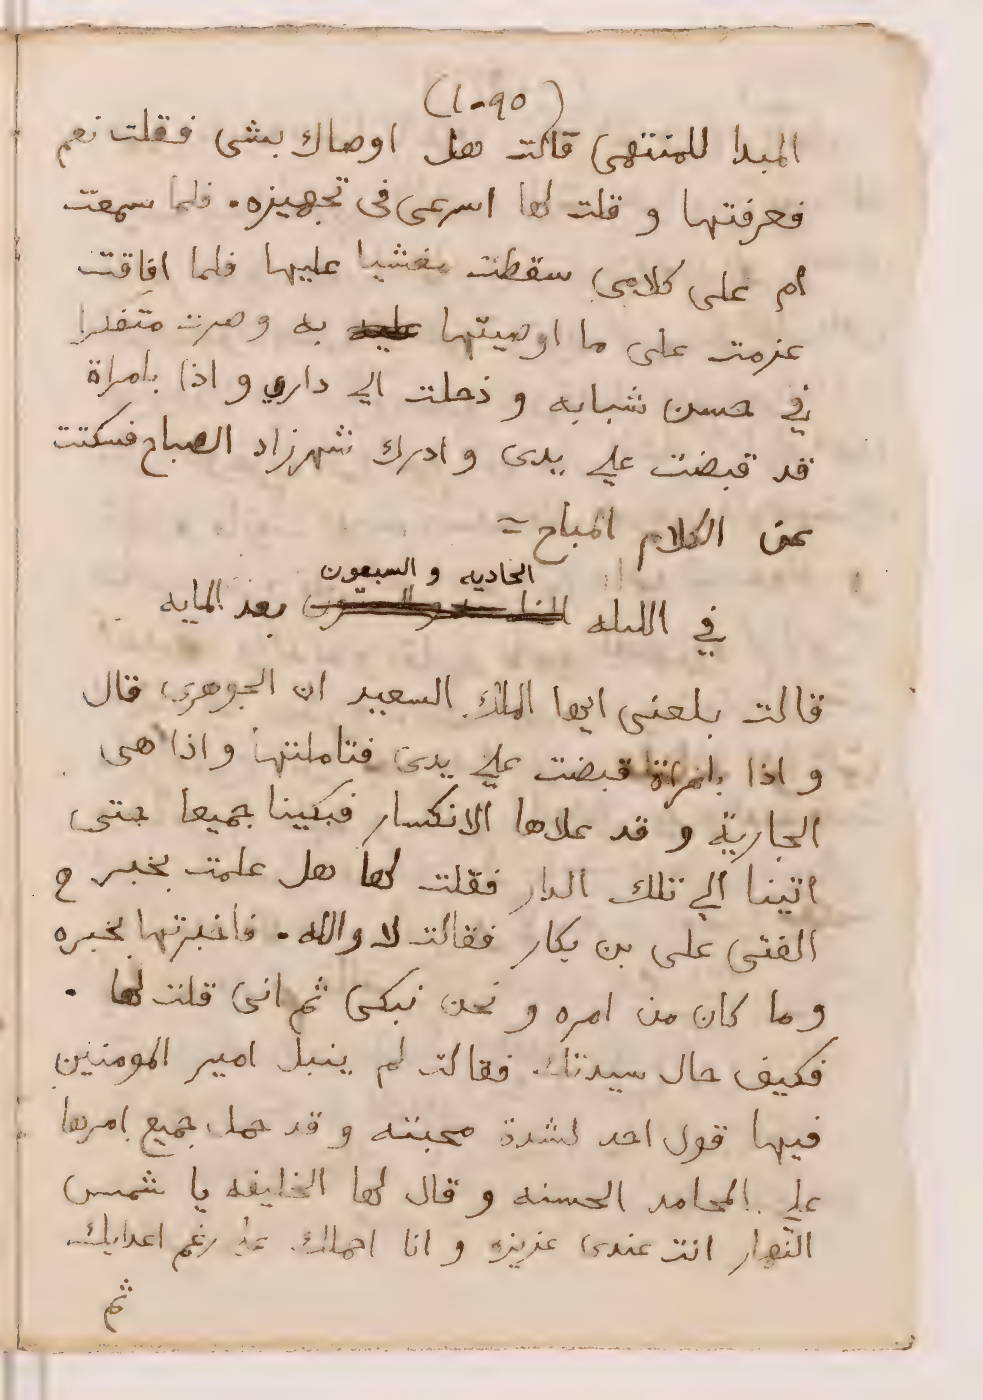 (١٠٩٥)
المبدا للمنتهى قالت هل اوصاك بشى فقلت نعم
فعرفتها و قلت لها اسرعى فى تجهيزه. فلما سمعت
ام على كلامى سقطت مغشيا عليها فلما افاقت
عزمت على ما اوصيتها عليه به و صرت متفكرا
في حسن شبابه و ذحلت الي داري و اذا بامراة
قد قبضت علي يدى و ادرك شهرزاد الصباح فسكتت
عن الكلام المباح =
الحاديه و السبعون
في الليله بعد المايه
قالت بلعنى ايها الملك السعيد ان الجوهرى قال
و اذا بامراة قبضت علي يدى فتاملتها و اذا هى
الجارية و قد علاها الانكسار فبكينا جميعا حتى
اتينا الي تلك الدار فقلت لها هل علمت بخبر ح
الفتى على بن بكار فقالت لا والله. فاخبرتها بخبره
و ما كان من امره و نحن نبكى ثم انى قلت لها .
فكيف حال سيدتك. فقالت لم ينبل امير المومنين
فيها قول احد لشدة محبته و قد حمل جميع امرها
علي المحامد الحسنه و قال لها الخليفه يا شمس
النهار انت عندى عزيزه و انا احملك علي رغم اعدايك
ثم